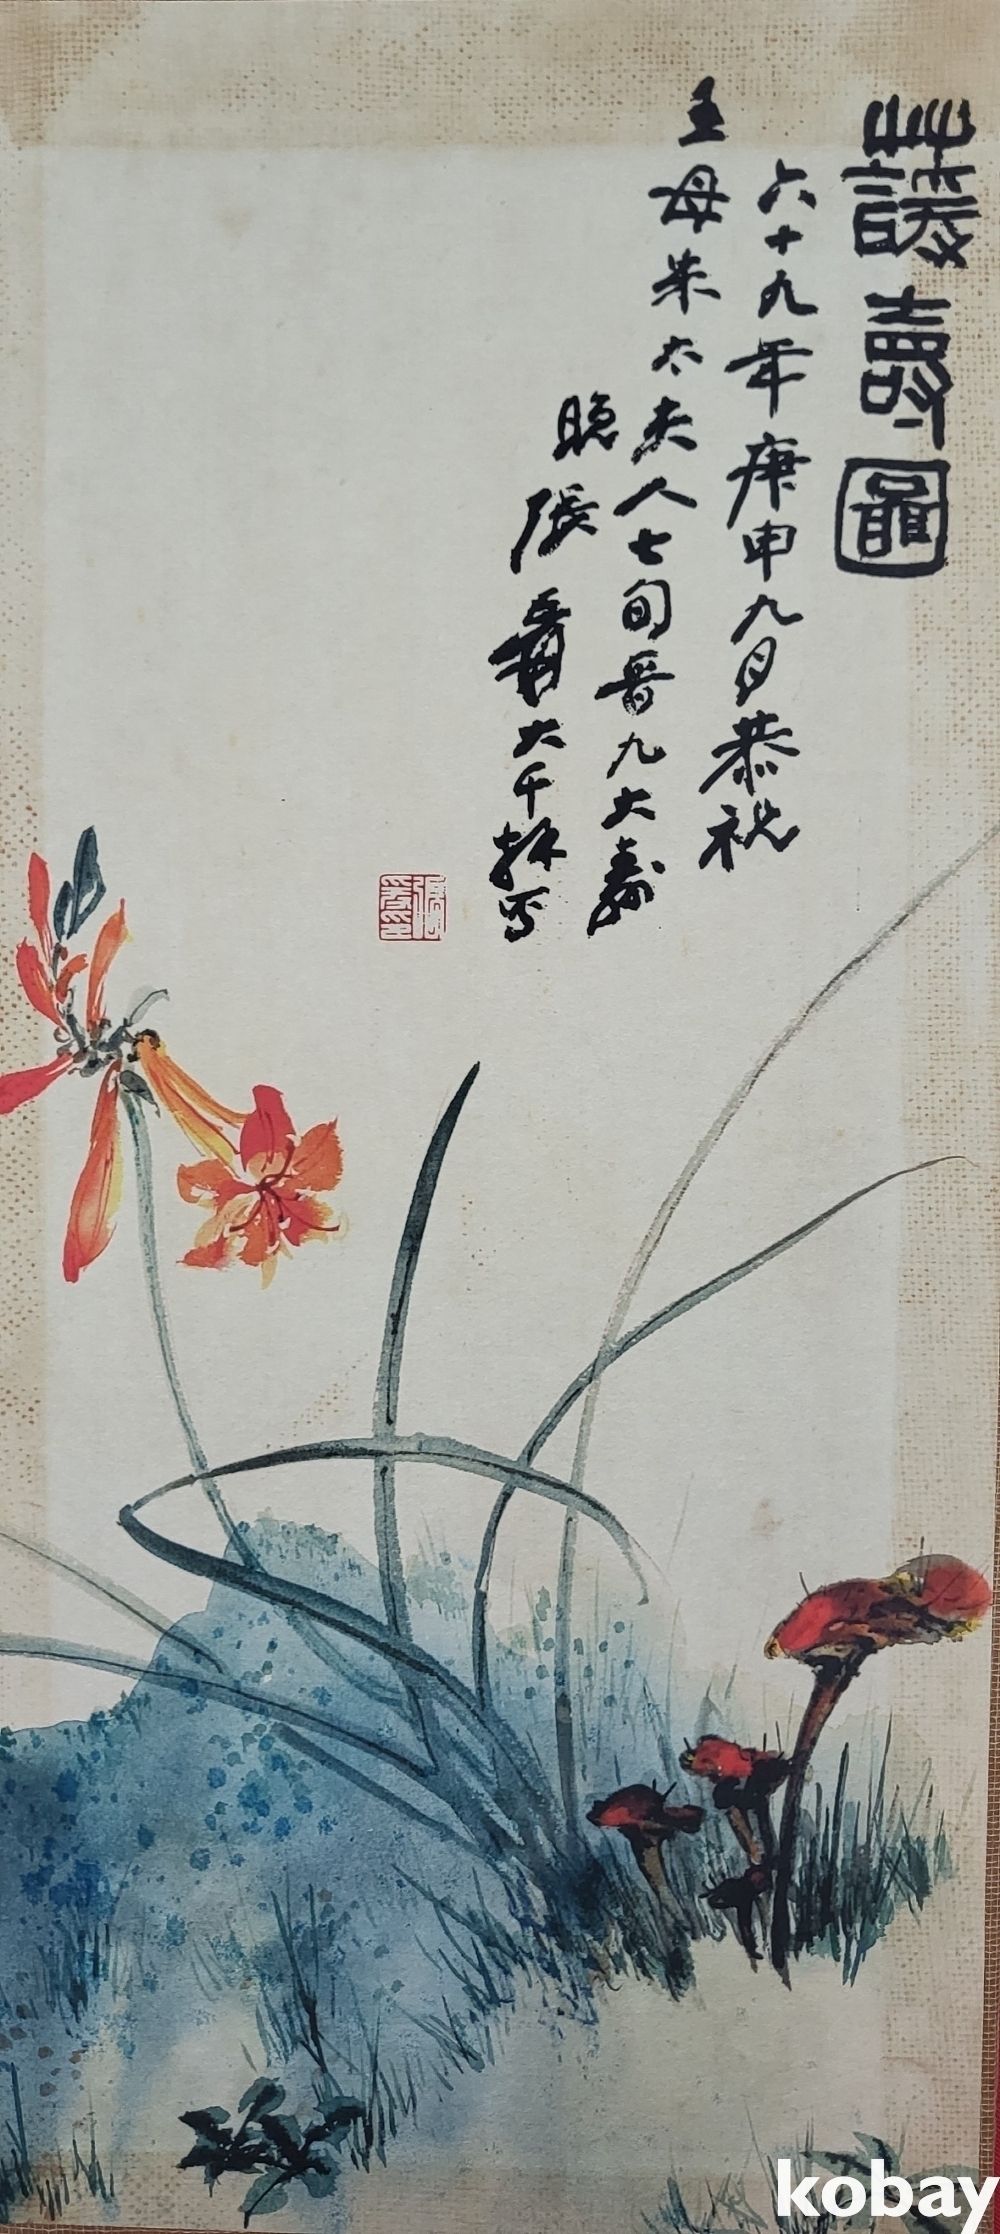 蘐壽圖
六十九年庚申九月恭祝
王母朱太夫人七旬晉九大壽
晚張爰大千拜寫
張爰印
kobay